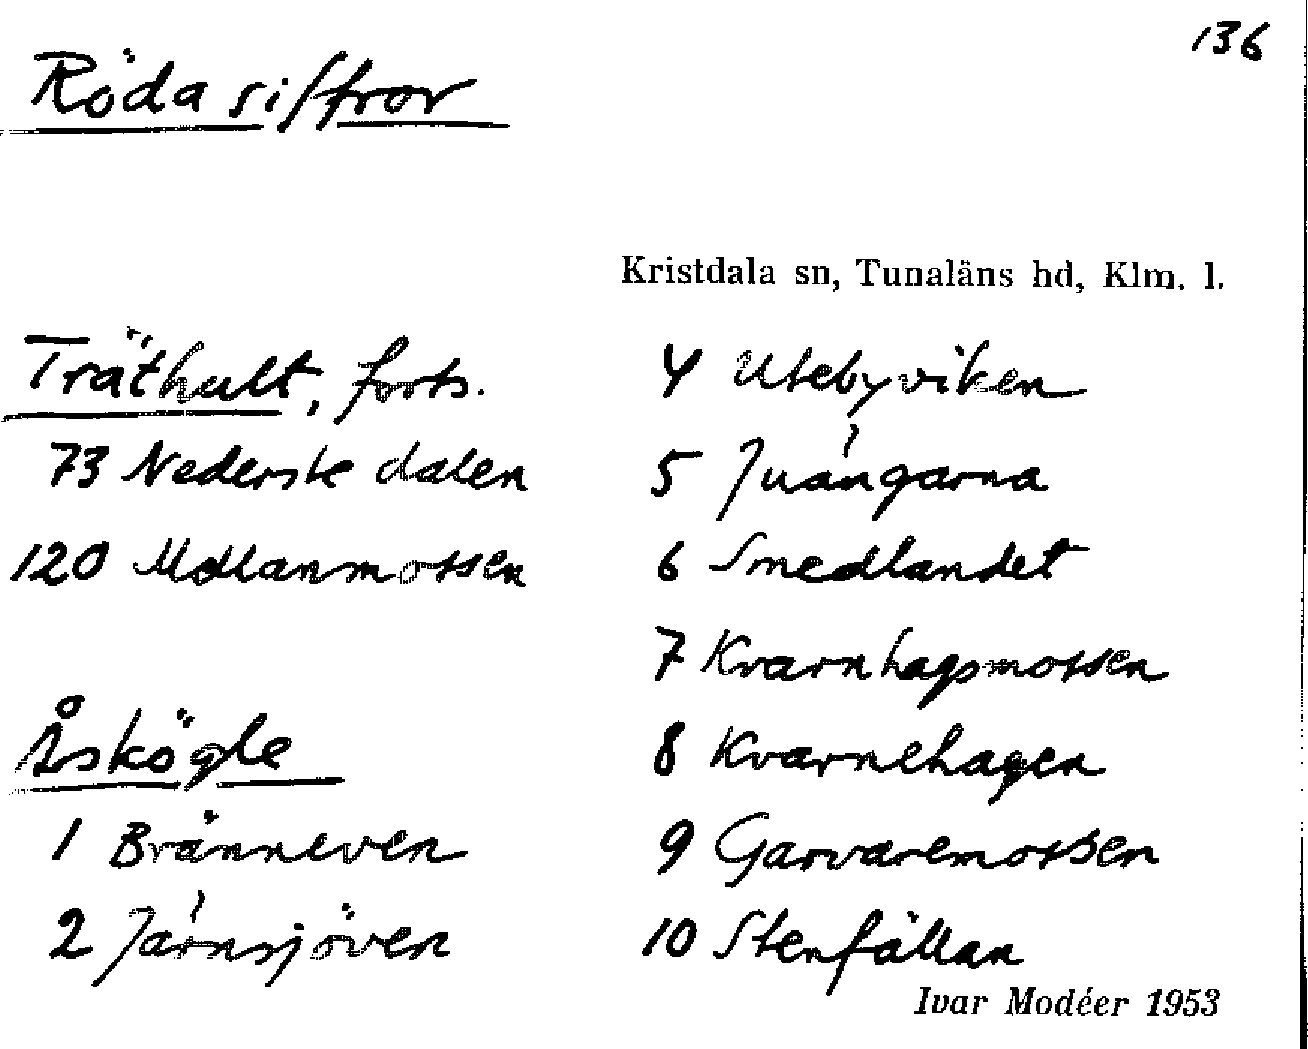 136
Röda siffror
Kristdala sn, Tunaläns hd, Klm. l.
Träthult, forts.
73 Nederste dalen
120 Mellanmossen
Åskögle
1 Bränneven
2 Järnsjöven
4 Utebyviken
5 Juängarna
6 Smedlandet
7 Kvarnhagsmossen
8 Kvarnehagen
9 Garvaremossen
10 Stenfällan
Ivar Modéer 1953